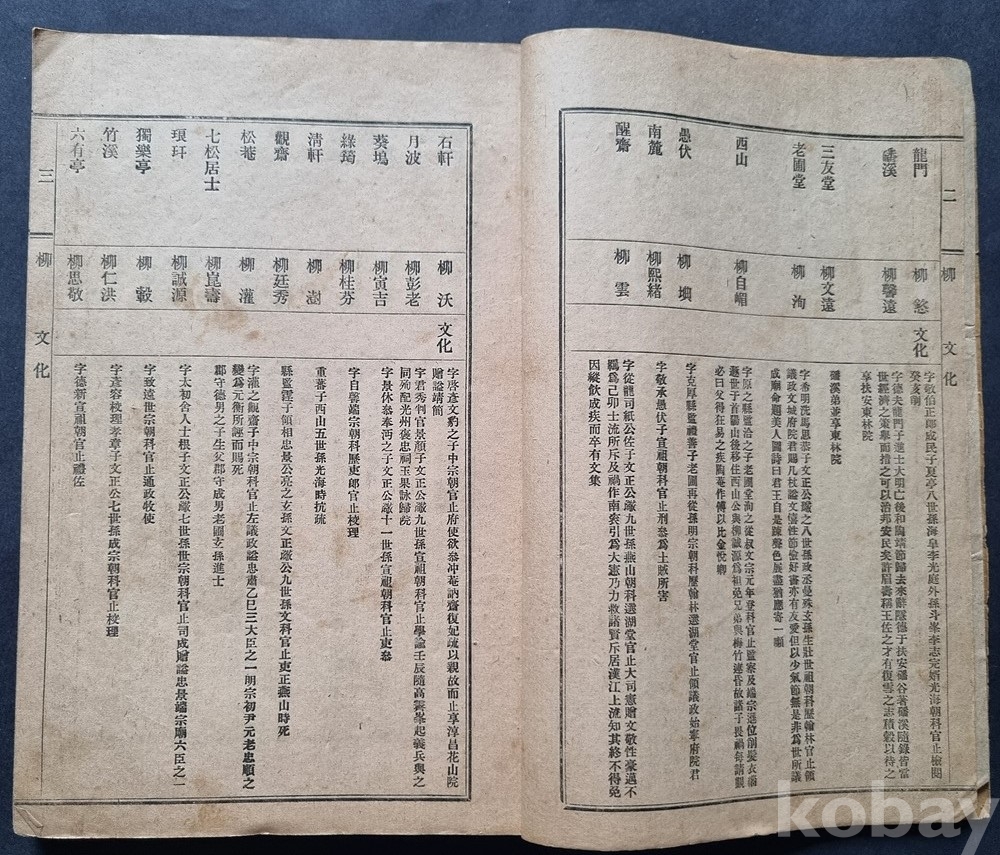 二
柳
文
化
龍門
柳 㦖
文化
字敬伯正郞成民子夏亭八世孫海皐李光庭外孫斗峯李志完婿光海朝科官止檢閱
癸亥禍
磻溪
柳馨遠
字德夫龍門子進士大明亡後和陶靖節歸去來辭隱德于扶安磻谷著磻溪隨錄皆當
世經濟之策擧而措之可以治邦安民矣許眉壽稱王佐之才有復雪之志積穀以待之
享扶安東林院
三友堂
柳文遠
磻溪弟兼享東林院
老圃堂
柳 洵
字希明洗馬思恭子文正公
之八世孫政丞曼殊玄孫生
世祖朝科歷翰林官止領
議政文城府院君賜几杖諡文僖性節儉好書亦有友愛但以少氣節無是非爲世所議
成廟命題美人圖詩曰君王自是疎聲色展畫猶應寄一嚬
西山
柳自湄
字原之縣監洽之子老圃堂洵之從叔文宗元年登科官止監察及端宗遜位削髮衣緇
遯世于首陽山後移住西山公與柳誠源爲祖免兄弟與梅竹連昏故諸子畏禍每請覲
必曰父得狂易之疾陶菴作傳以比金悅卿
愚伏
柳 塤
字克厚縣監禮善子老圃再從孫明宗朝科歷翰林選湖堂官止領議政始寧府院君
南麓
柳熙緖
字敬承愚伏子宣祖朝科官止刑參爲土賊所害
醒齋
柳 雲
字從龍司紙公佐子文正公
九世孫燕山朝科選湖堂官止大司憲贈文敬性豪邁不
羈爲己卯士流所斥及禍作南袞引爲大憲乃力救諸賢斥居漢江上流知其終不得免
因縱飮成疾而卒有文集
三
柳
文
化
石軒
柳 沃
文化
字啓彥文豹之子中宗朝官止府使欲參冲菴訥齋復妃疏以親故而止享淳昌花山院
贈諡靖節
月波
柳彭老
字君秀判官景顏子文正公
九世孫宣祖朝科官止學諭壬辰隨高霽峯起義兵與之
同殉配光州褒忠祠玉果詠歸院
葵塢
柳寅吉
字景休參奉泀之子文正公
十一世孫宣祖朝科官止吏參
綠筠
柳桂芬
字自馨端宗朝科歷吏郞官止校理
淸軒
柳 澍
重蕃子西山五世孫光海時抗疏
觀齋
柳廷秀
縣監
子領相忠景公亮之玄孫文正
公九世孫文科官止吏正燕山時死
松菴
柳 灌
字灌之觀齋子中宗朝科官止左議政諡忠肅乙巳三大臣之一明宗初尹元老忠順之
變爲元衡所誣而賜死
七松居士
柳崑壽
郡守德男之子生父郡守成男老圃玄孫進士
琅玕
柳誠源
字太初舍人士根子文正公
七世孫世宗朝科官止司成贈諡忠景端宗廟六臣之一
獨樂亭
柳 轂
字致遠世宗朝科官止通政牧使
竹溪
柳仁洪
字彥容校理孝章子文正公七世孫成宗朝科官止校理
六有亭
柳思敬
字德新宣祖朝官止禮佐
kobay